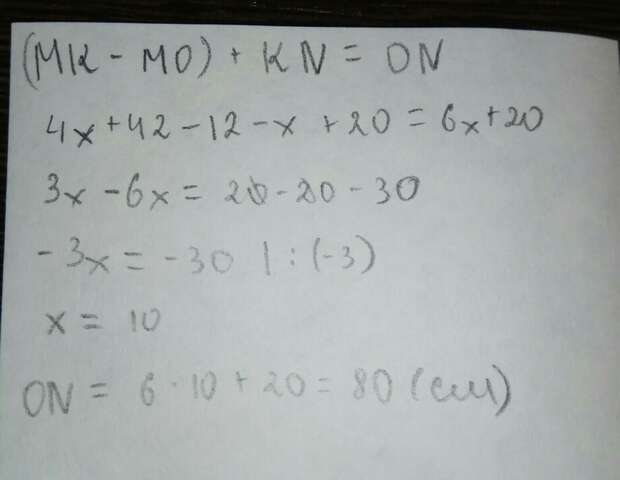 (MK - MO) + KN = ON
4x + 42 - 12 - x + 20 = 6x + 20
3x - 6x = 20 - 20 - 30
-3x = -30 | : (-3)
x = 10
ON = 6 · 10 + 20 = 80 (см)